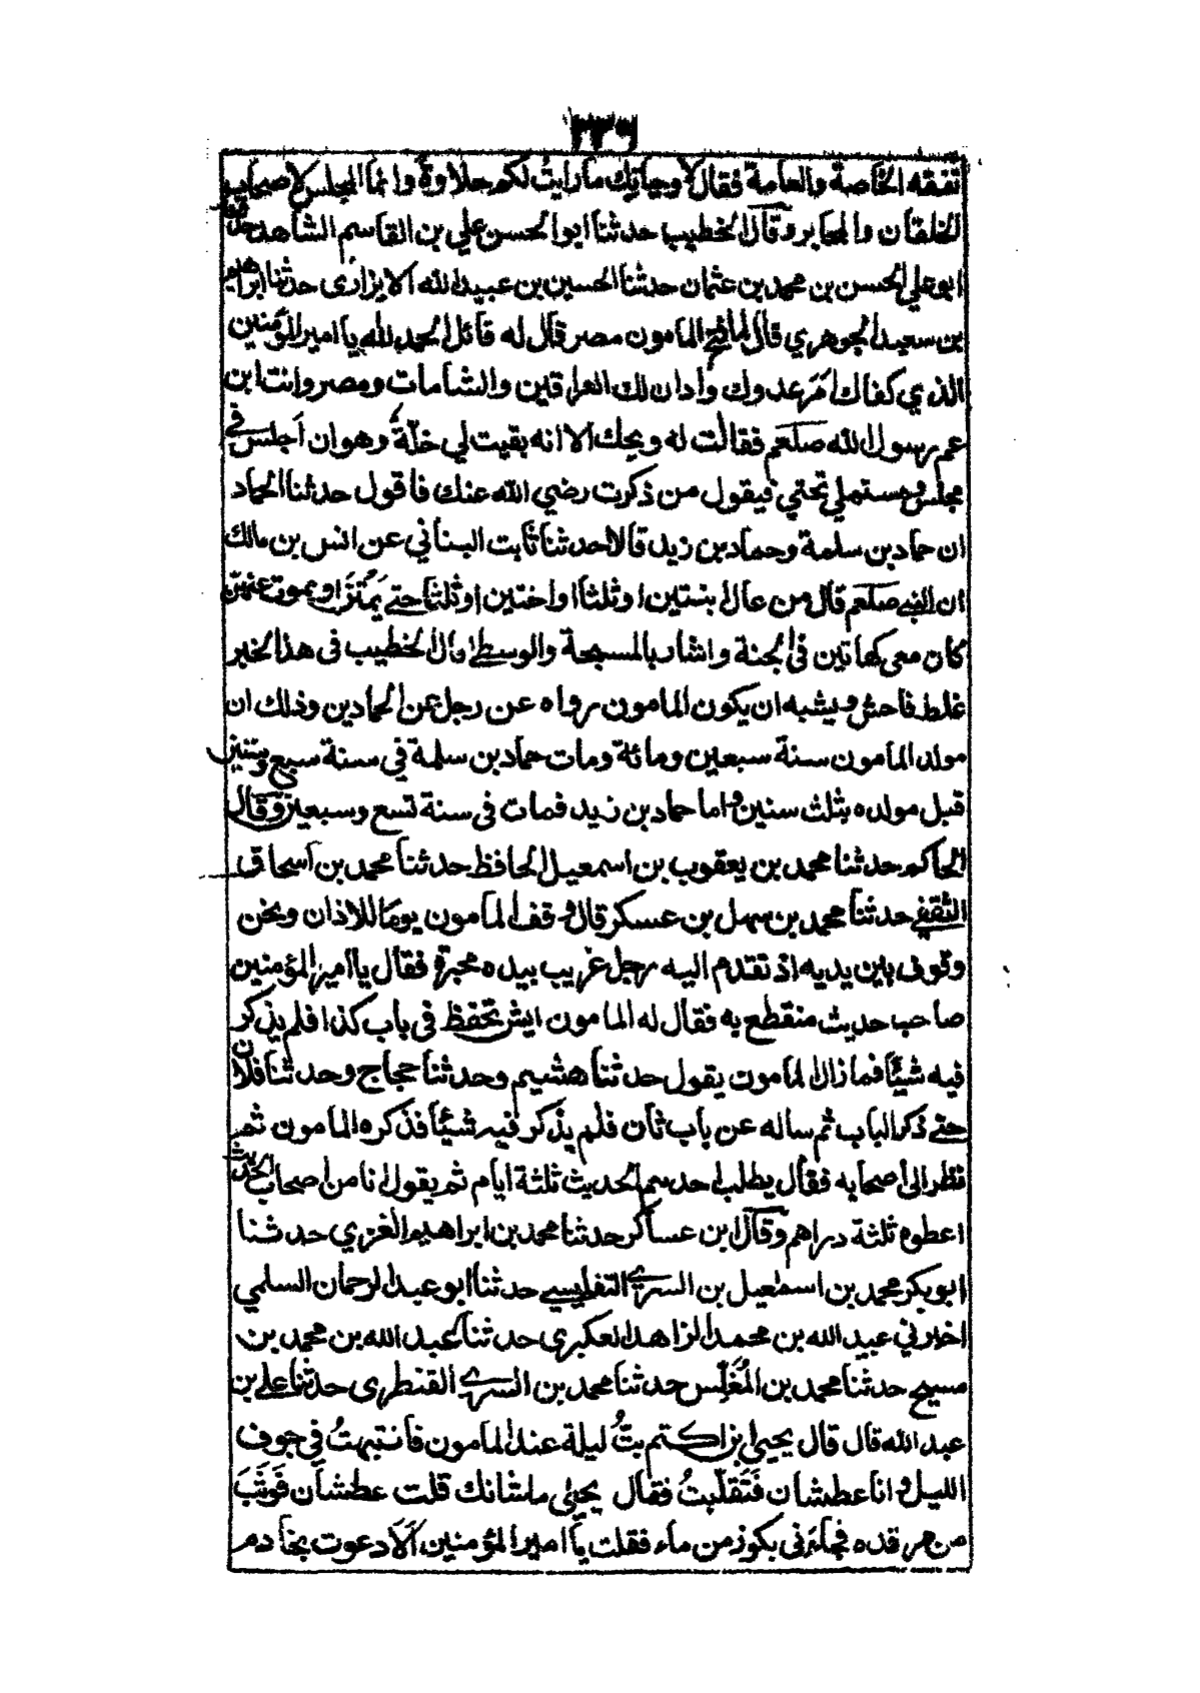 ٢٣٦
تفقه الخاصة والعامة فقال لا وحياتك ما رايت لكم حلاوة وانما المجلس لاصحاب
الخلقان والمحابر وقال الخطيب حدثنا ابو الحسن علي بن القاسم الشاهد حدثنا
ابو علي الحسن بن محمد بن عثمان حدثنا الحسين بن عبيد الله الابزاری حدثنا ابراهيم
بن سعيد الجوهري قال لما فتح المامون مصر قال له قائل الحمد لله يا امير المؤمنين
الذي كفاك امر عدوك وادان لك العراقين والشامات ومصر وانت ابن
عم رسول الله صلعم فقالت له ويحك الا انه بقيت لي خلّة وهو ان اجلس في
مجلس ومستملي تحتي فيقول من ذكرت رضي الله عنك فاقول حدثنا الحماد
ان حماد بن سلمة وحماد بن زيد قالا حدثنا ثابت البناني عن انس بن مالك
ان النبي صلعم قال من عال ابنتين او ثلثا او اختين او ثلثا حتى يمتن او يموت عنهن
كان معي كهاتين في الجنة واشار بالمسبحة والوسطى قال الخطيب فى هذا الخبر
غلط فاحش ويشبه ان يكون المامون رواه عن رجل عن الحمادين وذلك ان
مولد المامون سنة سبعين ومائة ومات حماد بن سلمة في سنة سبع وستين
قبل مولده بثلث سنين واما حماد بن زيد فمات فى سنة تسع وسبعين وقال
الحاكم حدثنا محمد بن يعقوب بن اسمعيل الحافظ حدثنا محمد بن اسحاق
الثقفي حدثنا محمد بن سهل بن عسكر قال وقف المامون يوما للاذان ونحن
وقوف بين يديه اذ تقدم اليه رجل غريب بيده محبرة فقال يا امير المؤمنين
صاحب حديث منقطع به فقال له المامون ايش تحفظ فى باب كذا فلم يذكر
فيه شيئا فما زال المامون يقول حدثنا هشيم وحدثنا حجاج وحدثنا فلان
حتى ذكر الباب ثم ساله عن باب ثان فلم يذكر فيه شيئا فذكره المامون ثم
نظر الى اصحابه فقال يطلب احدهم الحديث ثلثة ايام ثم يقول انا من اصحاب الحديث
اعطوه ثلثة دراهم وقال ابن عساكر حدثنا محمد بن ابراهيم الغزي حدثنا
ابو بكر محمد بن اسمعيل بن السري التفليسي حدثنا ابو عبد الرحمان السلمي
اخبرني عبيد الله بن محمد الزاهد العكبري حدثنا عبد الله بن محمد بن
مسيح حدثنا محمد بن المُغَلِّس حدثنا محمد بن السري القنطرى حدثنا علي بن
عبد الله قال قال يحيى بن اكتم بتُّ ليلة عند المامون فانتبهتُ في جوف
الليل وانا عطشان فَتَقلّبتُ فقال يحيى ماشانك قلت عطشان فَوَثَبَ
من مرقده فجاءنى بكوز من ماء فقلت يا امير المؤمنين اَلا دعوت بخادم